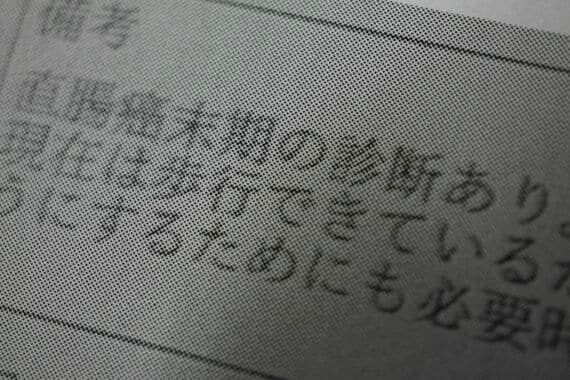 備考
直腸癌末期の診断あり。
現在は歩行できているが
うにするためにも必要時